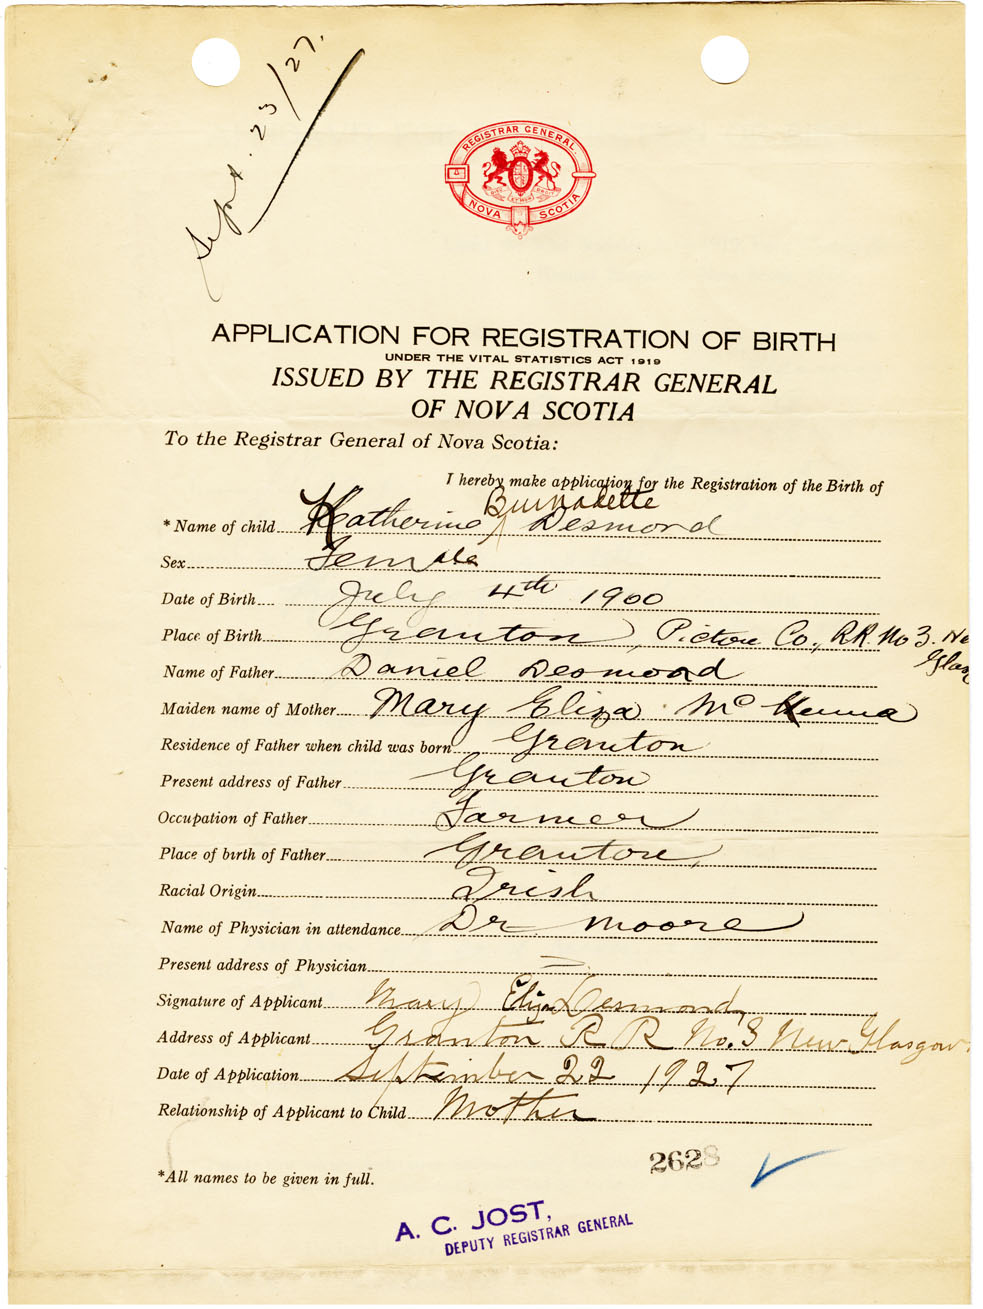 Sept. 23/27.
REGISTRAR GENERAL.
NOVA SCOTIA
APPLICATION FOR REGISTRATION OF BIRTH
UNDER THE VITAL STATISTICS ACT 1919
ISSUED BY THE REGISTRAR GENERAL
OF NOVA SCOTIA
To the Registrar General of Nova Scotia:
I hereby make application for the Registration of the Birth of
Burnadette
*Name of child Katherine Desmond
Sex Female
Date of Birth July 4th 1900
Place of Birth Granton, Pictou Co., R.R. No 3. Ne
Glas
Name of Father Daniel Desmond
Maiden name of Mother Mary Eliza McKenna
Residence of Father when child was born Granton
Present address of Father Granton
Occupation of Father Farmer
Place of birth of Father Granton
Racial Origin Irish
Name of Physician in attendance Dr Moore
Present address of Physician
Signature of Applicant Mary Eliza Desmond
Address of Applicant Granton R R No. 3 New Glasgow.
Date of Application September 22 1927
Relationship of Applicant to Child Mother
2628
*All names to be given in full.
A. C. JOST,
DEPUTY REGISTRAR GENERAL